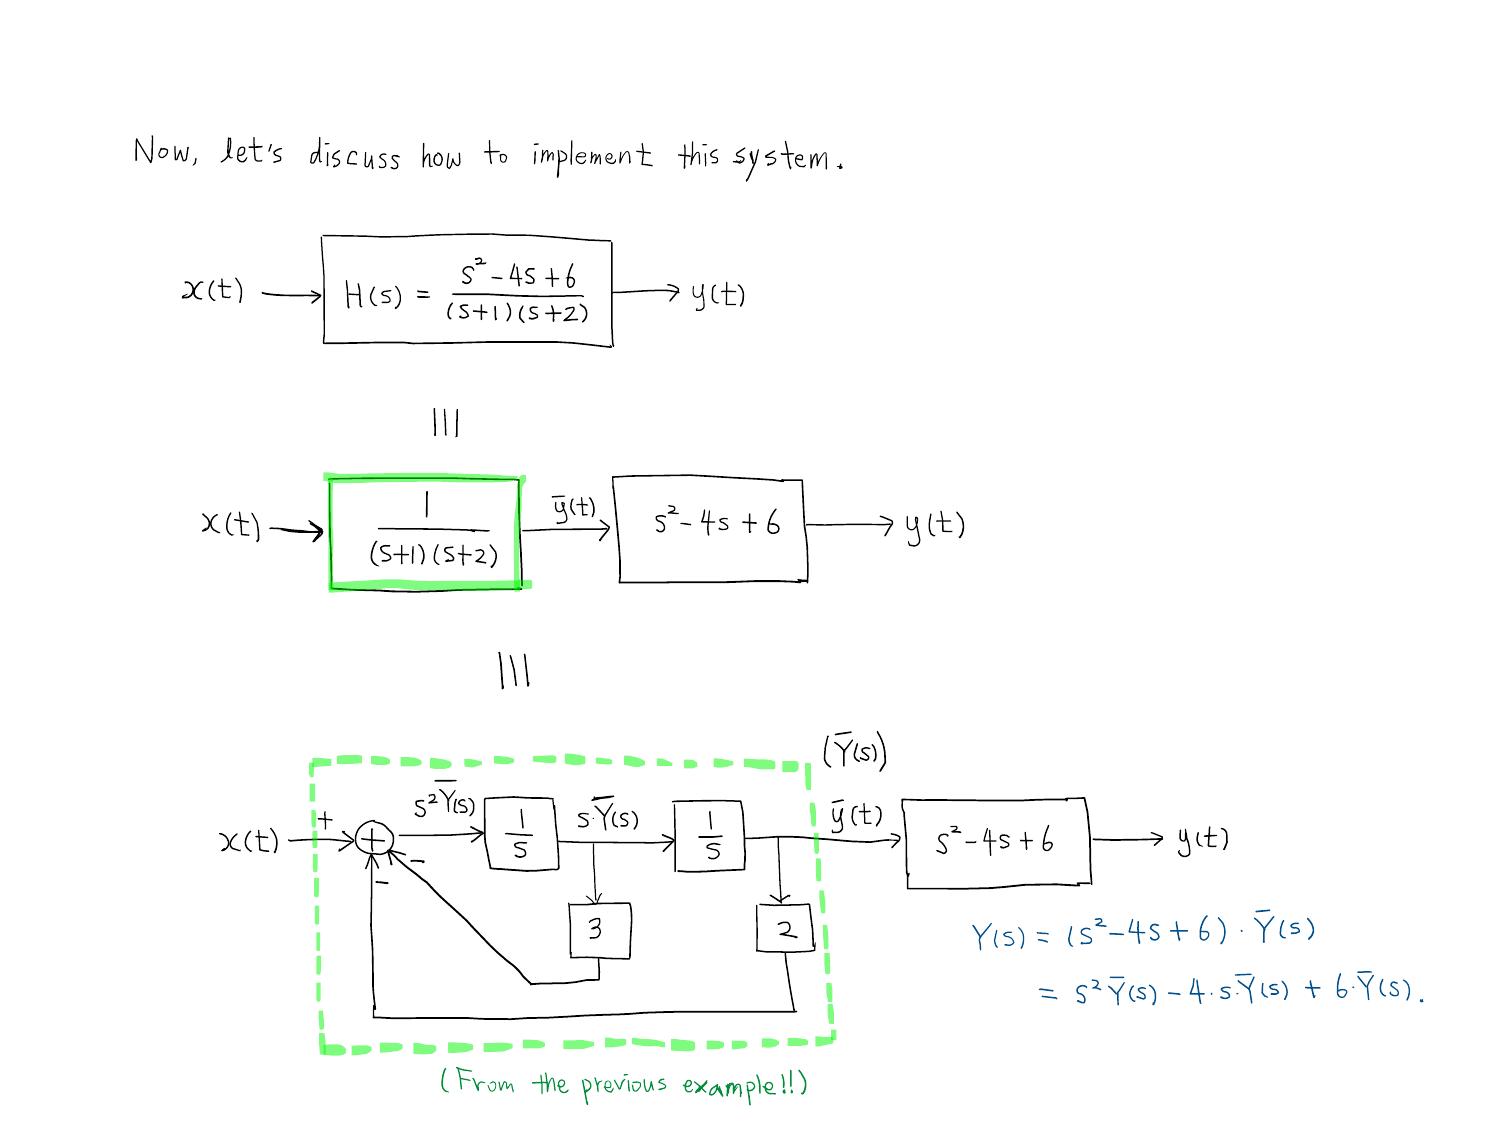 Now, let's discuss how to implement this system.
x(t) → H(s) = (s² - 4s + 6) / ((s+1)(s+2)) → y(t)
|||
x(t) → 1 / ((s+1)(s+2)) → ȳ(t) → s² - 4s + 6 → y(t)
|||
(Ȳ(s))
x(t) + + s²Ȳ(s) 1/s s·Ȳ(s) 1/s ȳ(t) s² - 4s + 6 y(t)
- -
3 2
Y(s) = (s² - 4s + 6) · Ȳ(s)
= s² Ȳ(s) - 4·s·Ȳ(s) + 6·Ȳ(s).
(From the previous example!!)